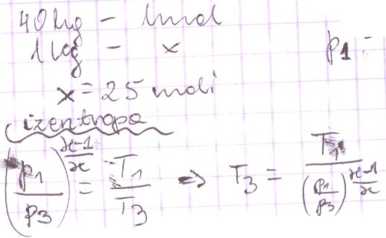 40 kg - 1 mol
1 kg - x
p1 =
x = 25 moli
izentropa
(p1/p3)^((ϰ-1)/ϰ) = T1/T3 => T3 = T1/((p1/p3)^((ϰ-1)/ϰ))